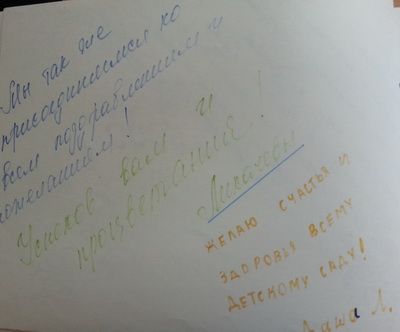 Мы так же
присоединяемся ко
всем поздравлениям и
пожеланиям!
Успехов вам и
процветания!
Лихачевы
ЖЕЛАЮ СЧАСТЬЯ И
ЗДОРОВЬЯ ВСЕМУ
ДЕТСКОМУ САДУ!
Даша Л.